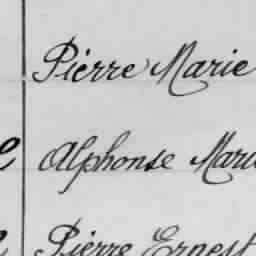 Pierre Marie
Alphonse Mari
Pierre Ernest